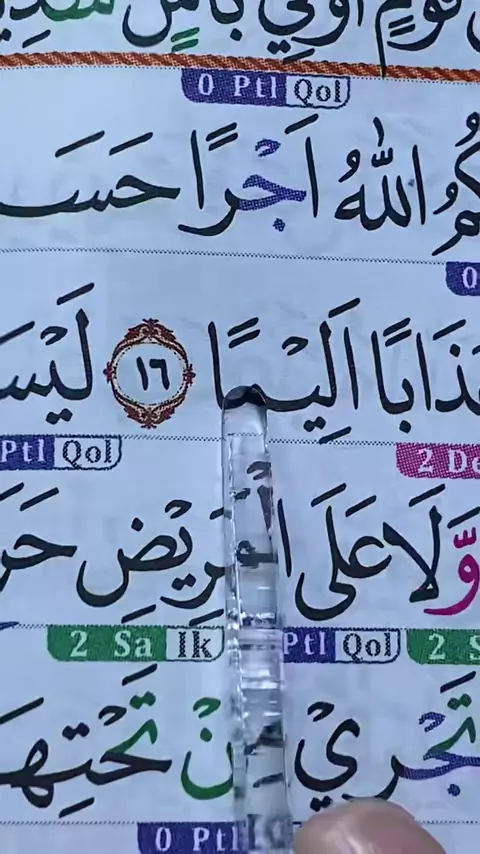 قَوْمٍ اُولِيْ بَاْسٍ شَدِيْدٍ
0 Ptl Qol
اللّٰهُ اَجْرًا حَسَ
0
عَذَابًا اَلِيْمًا ١٦ لَيْسَ
Ptl Qol 2 De
وَّلَا عَلَى الْمَرِيْضِ حَرَ
2 Sa Ik Ptl Qol 2 S
تَجْرِيْ مِنْ تَحْتِهَ
0 Ptl